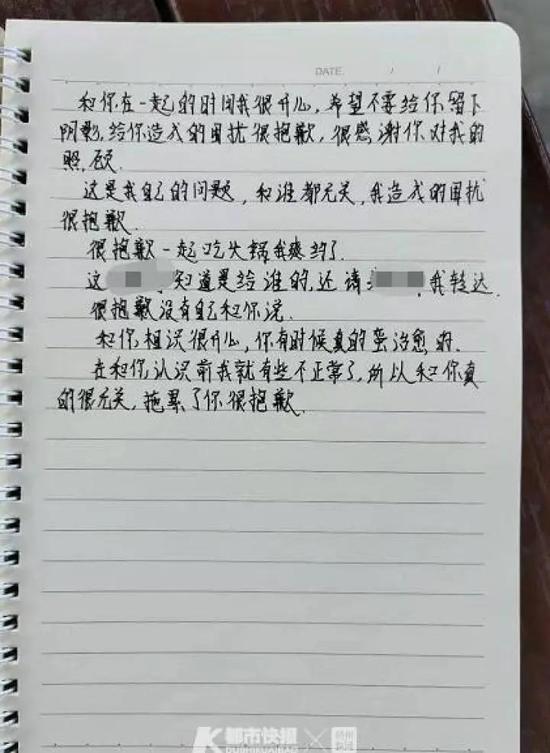 DATE. / /
和你在一起的时间我很开心，希望不要给你留下
阴影，给你造成的困扰很抱歉，很感谢你对我的
照顾.
这是我自己的问题，和谁都无关，我造成的困扰
很抱歉.
很抱歉一起吃火锅我爽约了.
这 知道是给谁的，还请 我转达.
很抱歉没有自己和你说.
和你相识很开心，你有时候真的蛮治愈的.
在和你认识前我就有些不正常了，所以和你真
的很无关，拖累了你很抱歉.
都市快报 ×
DUSHIKUAIBAO